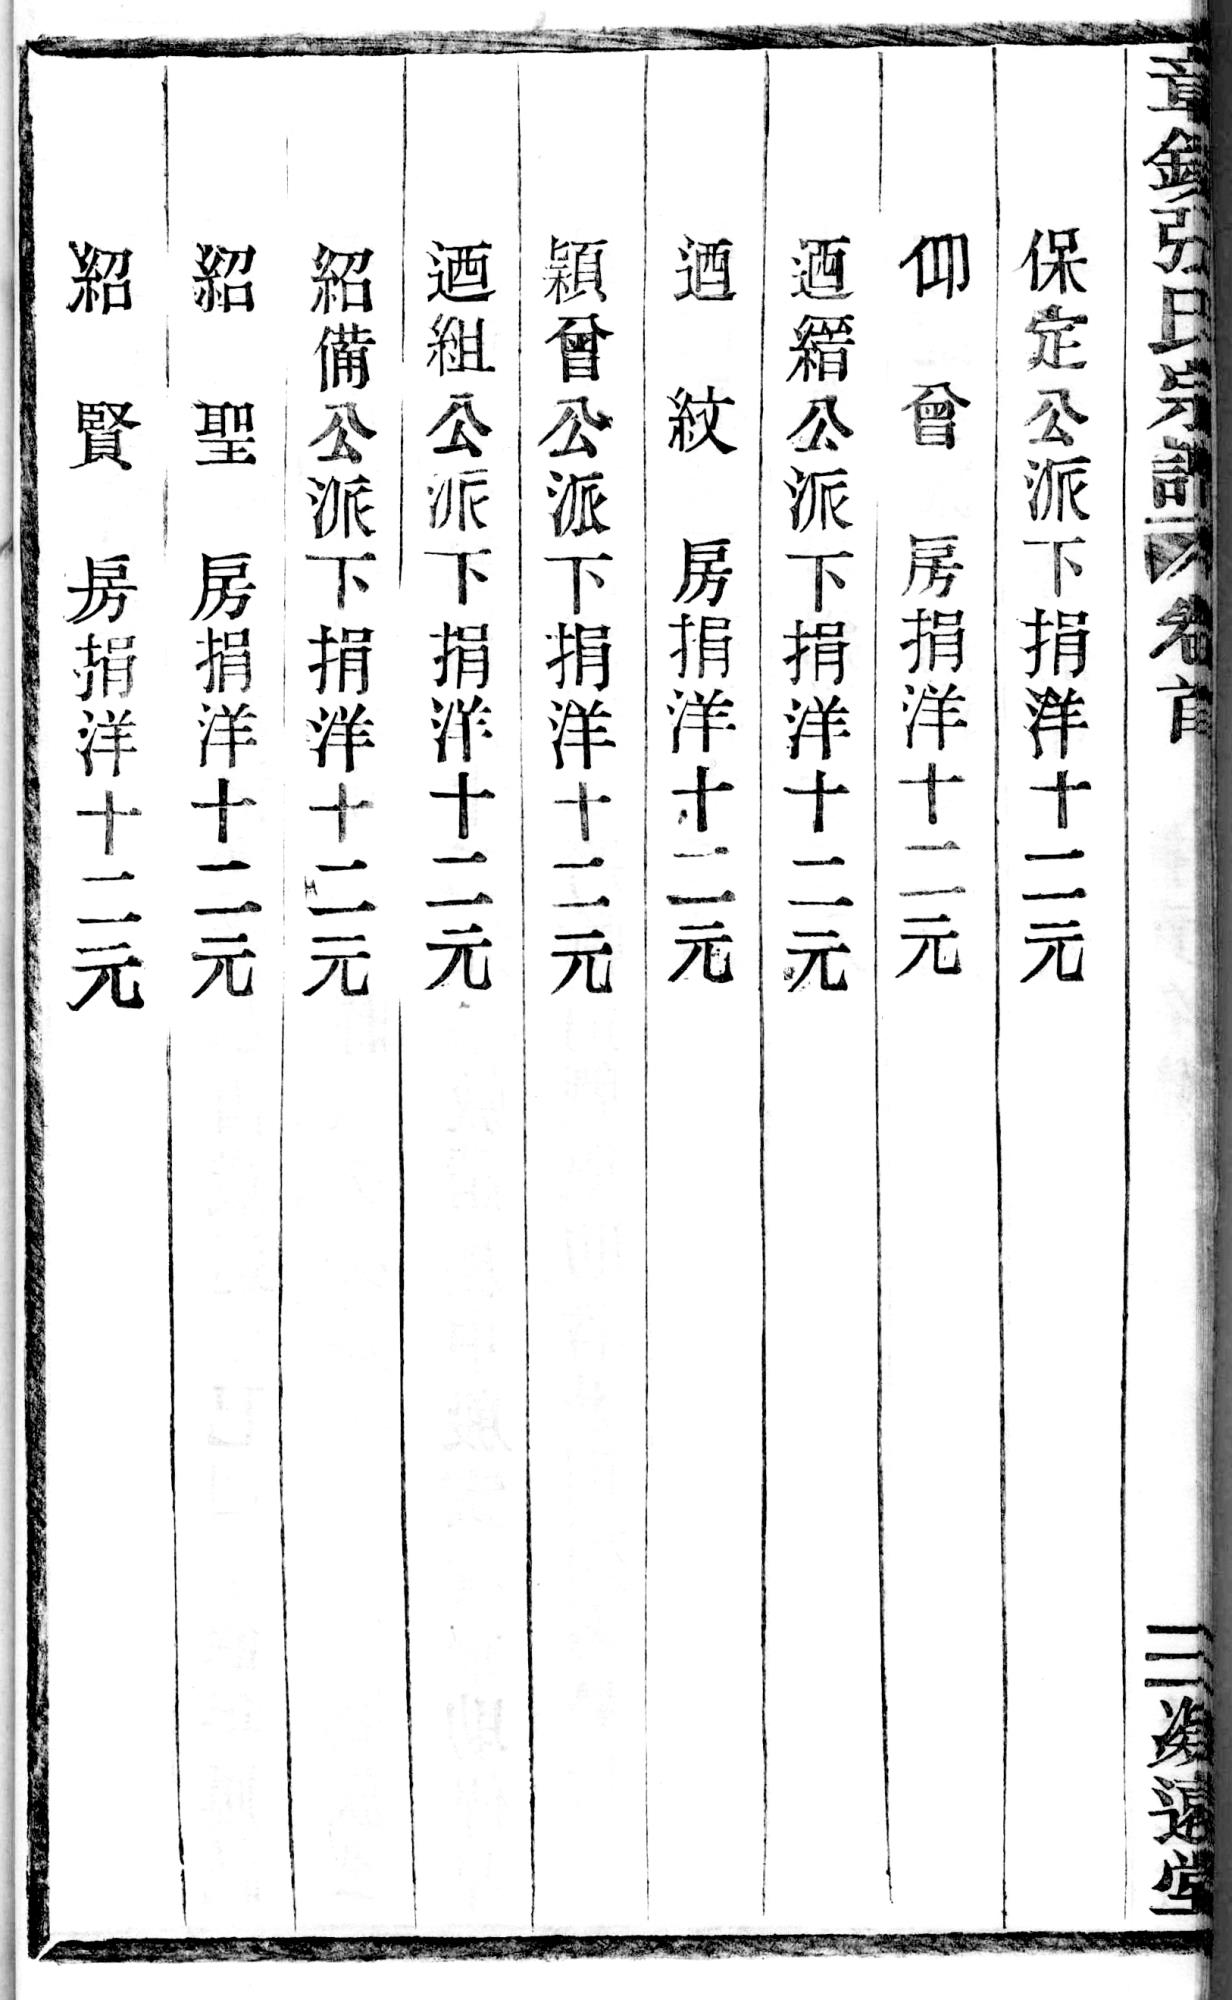 章張氏宗譜 卷首 三 遠堂
保定公派下捐洋十二元
仰曾房捐洋十二元
迺縉公派下捐洋十二元
迺紋房捐洋十二元
穎曾公派下捐洋十二元
迺組公派下捐洋十二元
紹備公派下捐洋十二元
紹聖房捐洋十二元
紹賢房捐洋十二元